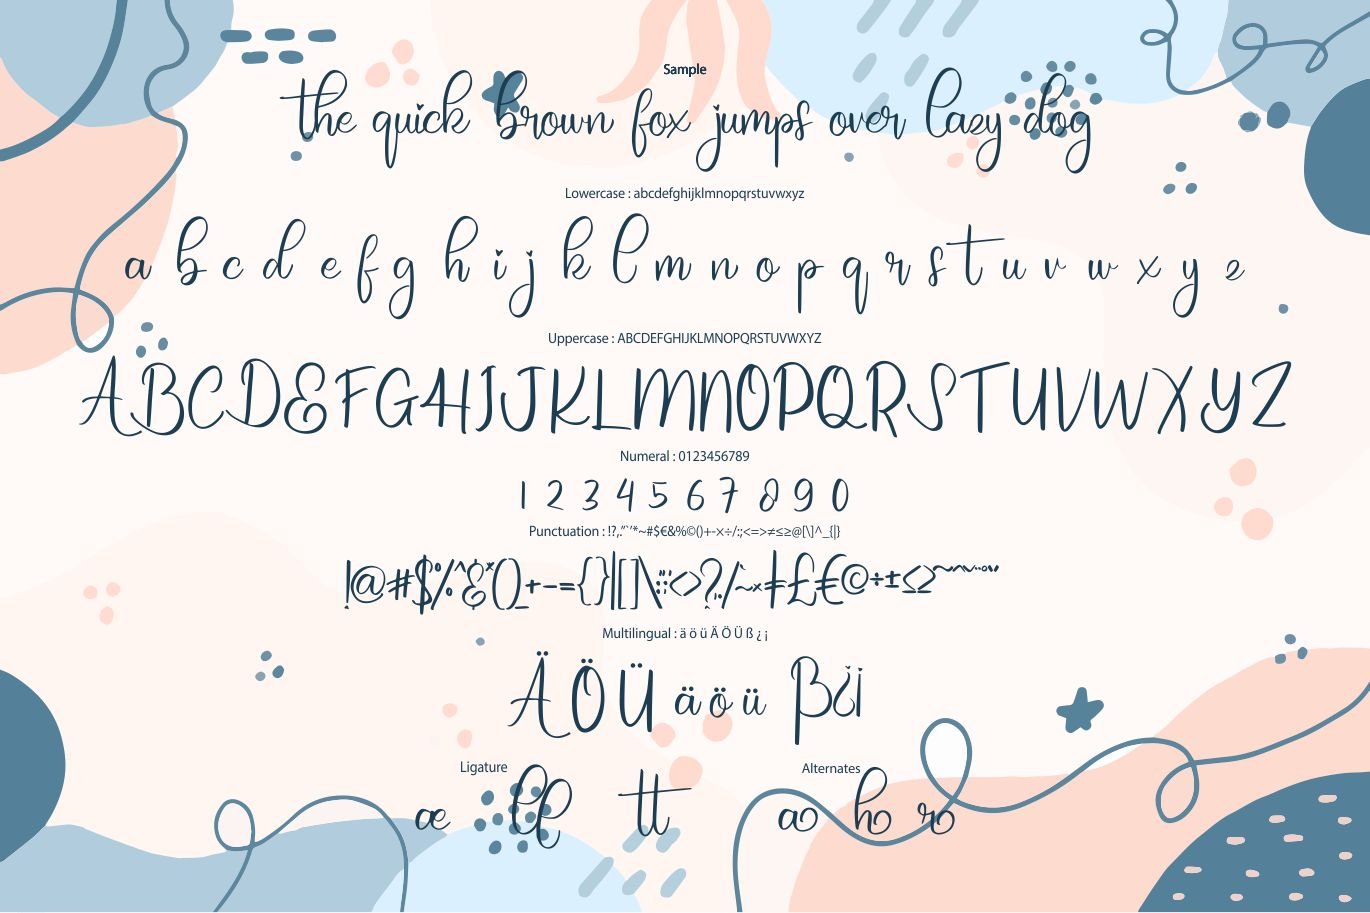 Sample
the quick brown fox jumps over lazy dog
Lowercase : abcdefghijklmnopqrstuvwxyz
a b c d e f g h i j k l m n o p q r s t u v w x y z
Uppercase : ABCDEFGHIJKLMNOPQRSTUVWXYZ
ABCDEFGHIJKLMNOPQRSTUVWXYZ
Numeral : 0123456789
1 2 3 4 5 6 7 8 9 0
Punctuation : !?,.”“`’*~#$€&%©()+-×÷/:;<=>≠≤≥@[\]^_{|}
!@#$%^&*()_+-={}|[]\:";'<>?,./
Multilingual : ä ö ü Ä Ö Ü ß ¿ ¡
Ä Ö Ü ä ö ü ß¿¡
Ligature Alternates
æ ll tt a h r